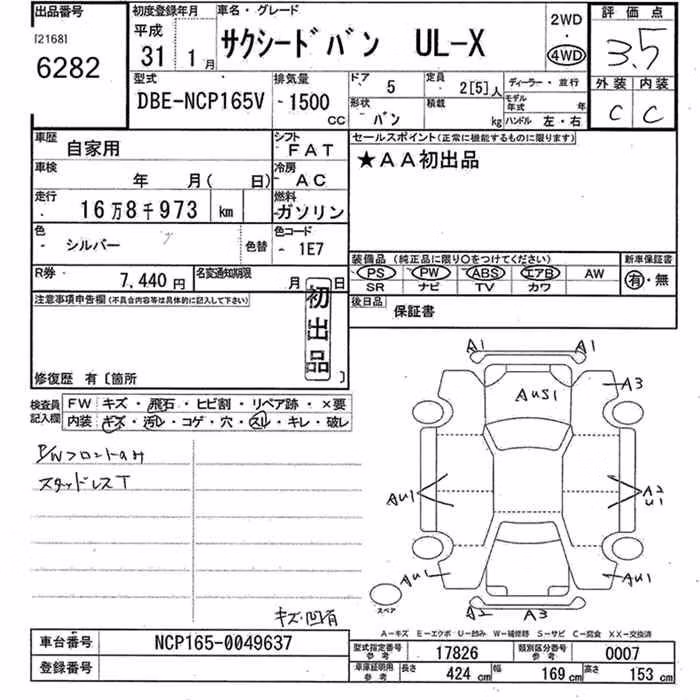 出品番号
[2168]
6282
初度登録年月
平成
31年 1月
車名・グレード
サクシードバン UL-X
2WD
・
4WD
評価点
3.5
外装 内装
C C
型式
DBE-NCP165V
排気量
1500
CC
ドア 5
形状 バン
定員 2[5]人
積載 kg
ディーラー・並行
モデル年式 年
ハンドル 左・右
車歴 自家用
シフト FAT
車検 年 月( 日)
冷房 AC
走行 16万8千973 km
燃料 ガソリン
色 シルバー 色替
色コード 1E7
R券 7,440円
名変通知期限 月 日
セールスポイント(正常に機能するものに限ります)
★AA初出品
装備品 (純正品に限り○をつけてください)
PS PW ABS エアB AW
SR ナビ TV カワ
新車保証書
有・無
後日品 保証書
注意事項申告欄(不具合内容等は具体的に記入して下さい)
初出品
修復歴 有〔箇所 〕
検査員記入欄
FW キズ・飛石・ヒビ割・リペア跡・×要
内装 キズ・汚レ・コゲ・穴・スレ・キレ・破レ
P/Wフロントのみ
スタッドレスT
キズ・凹有
A1 A1
A3
AUS1
AU1
A2
U1
AU1 AU1
A2 A3
スペア
A-キズ E-エクボ U-凹み W-補修跡 S-サビ C-腐食 XX-交換済
車台番号 NCP165-0049637
登録番号
型式指定番号 参考 17826
類別区分番号 参考 0007
車庫証明用 参考 長さ 424 cm 幅 169 cm 高さ 153 cm